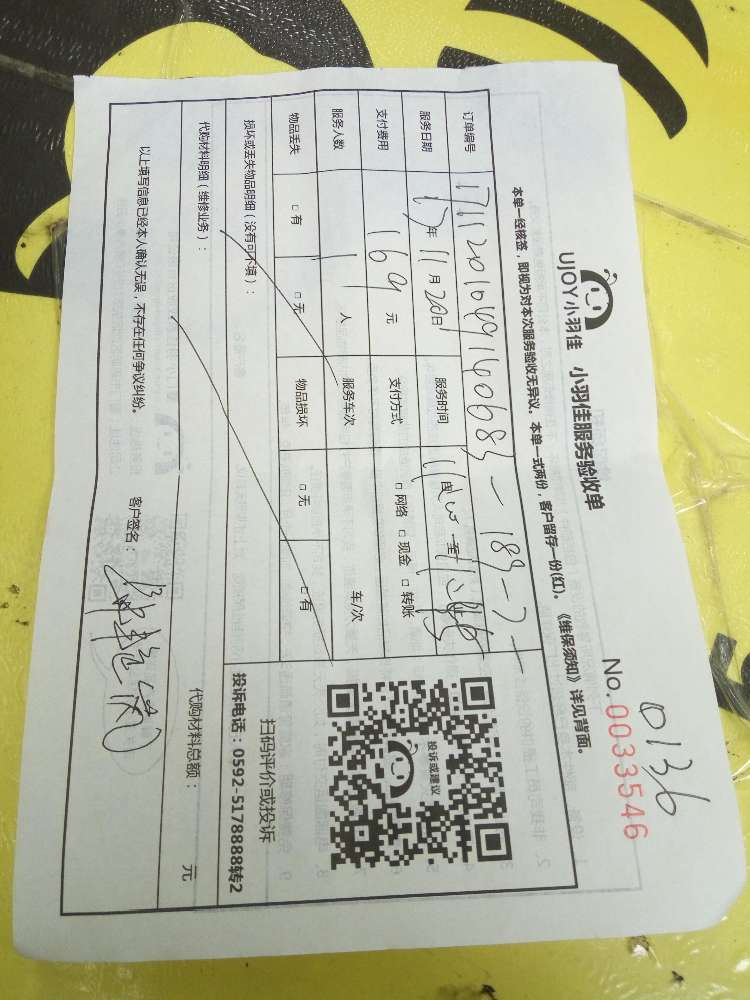 0136
UJOY小羽佳 小羽佳服务验收单 No.0033546
本单一经核签，即视为对本次服务验收无异议。本单一式两份，客户留存一份(红)。《维保须知》详见背面。
订单编号
服务日期 17年11月20日 服务时间 至
支付费用 169元 支付方式 □网络 □现金 □转账
服务人数 1人 服务车次 车/次
物品丢失 □有 □无 物品损坏 □无 □有
损坏或丢失物品明细(没有可不填)：
投诉或建议
扫码评价或投诉
投诉电话：0592-5178888转2
代购材料明细(维修业务)： 代购材料总额： 元
以上填写信息已经本人确认无误，不存在任何争议纠纷。 客户签名：